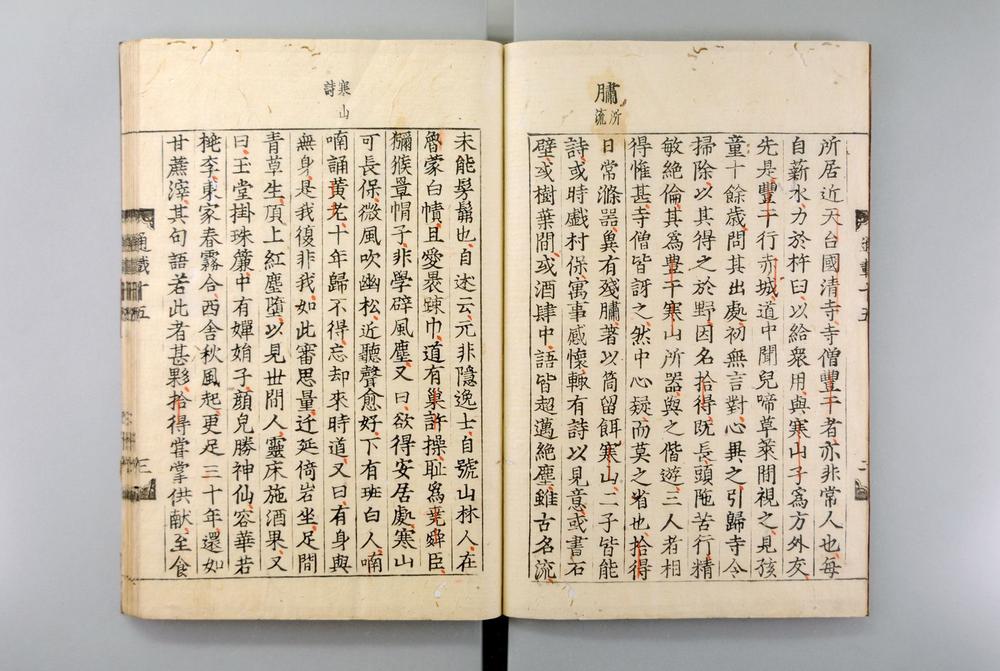 所居近天台國清寺寺僧豐干者亦非常人也每
自薪水力於杵臼以給衆用與寒山子爲方外友
先是豐干行赤城道中聞兒啼草萊間視之見孩
童十餘歳問其出處初無言對心異之引歸寺令
掃除以其得之於野因名拾得既長頭陁苦行精
敏絶倫其爲豊干寒山所器與之偕遊三人者相
得惟甚寺僧皆訝之然中心疑而莫之省也拾得
日常滌器臭有殘臕著以筒留餌寒山二子皆能
詩或時戯村保寓事感懷輙有詩以見意或書石
壁或樹葉間或酒肆中語皆超邁絶塵雖古名流
所
流
通載十五
二
寒山
詩
未能髣髴也自述云元非隱逸士自號山林人在
魯蒙白幘且愛褁踈巾道有巢許操耻爲堯舜臣
獼猴罩帽子非學辟風塵又曰欲得安居處寒山
可長保微風吹幽松近聽聲愈好下有班白人喃
喃誦黄老十年歸不得忘却來時道又曰有身與
無身是我復非我如此審思量迁延倚岩坐足間
青草生頂上紅塵墮以見世間人靈床施酒果又
曰玉堂掛珠簾中有嬋娟子顔皃勝神仙容華若
桃李東家春霧合西舎秋風起更足三十年還如
甘蔗滓其句語若此者甚夥拾得甞掌供献至食
通載十五
三